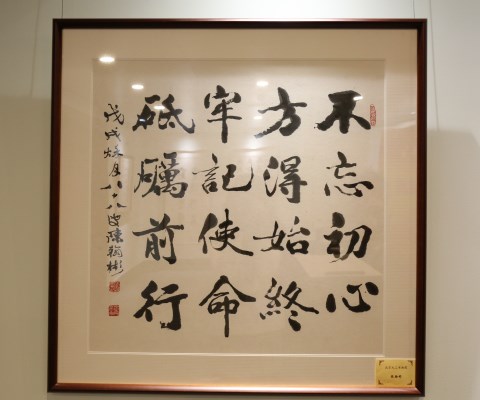 不忘初心
方得始終
牢記使命
砥礪前行
戊戌秋月八十八叟陳翰彬